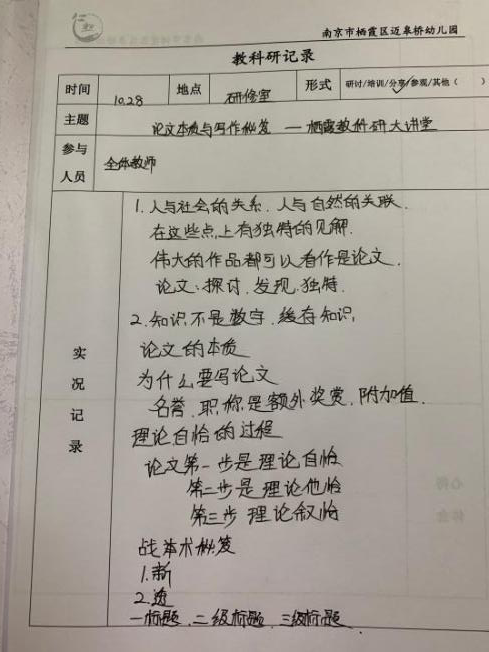 南京市栖霞区迈皋桥幼儿园
教科研记录
时间 10.28 地点 研修室 形式 研讨/培训/分享/参观/其他（ ）
主题 论文本质与写作秘笈 — 栖霞教科研大讲堂
参与人员 全体教师
实况记录
1.人与社会的关系.人与自然的关联.
在这些点上有独特的见解.
伟大的作品都可以看作是论文.
论文:探讨.发现.独特.
2.知识不是数字.缓存知识,
论文的本质
为什么要写论文
名誉.职称是额外奖赏.附加值.
理论自恰的过程
论文第一步是理论自恰
第二步是理论他恰
第三步理论叙恰
战术秘笈
1.新
2.透
一标题.二级标题.三级标题.